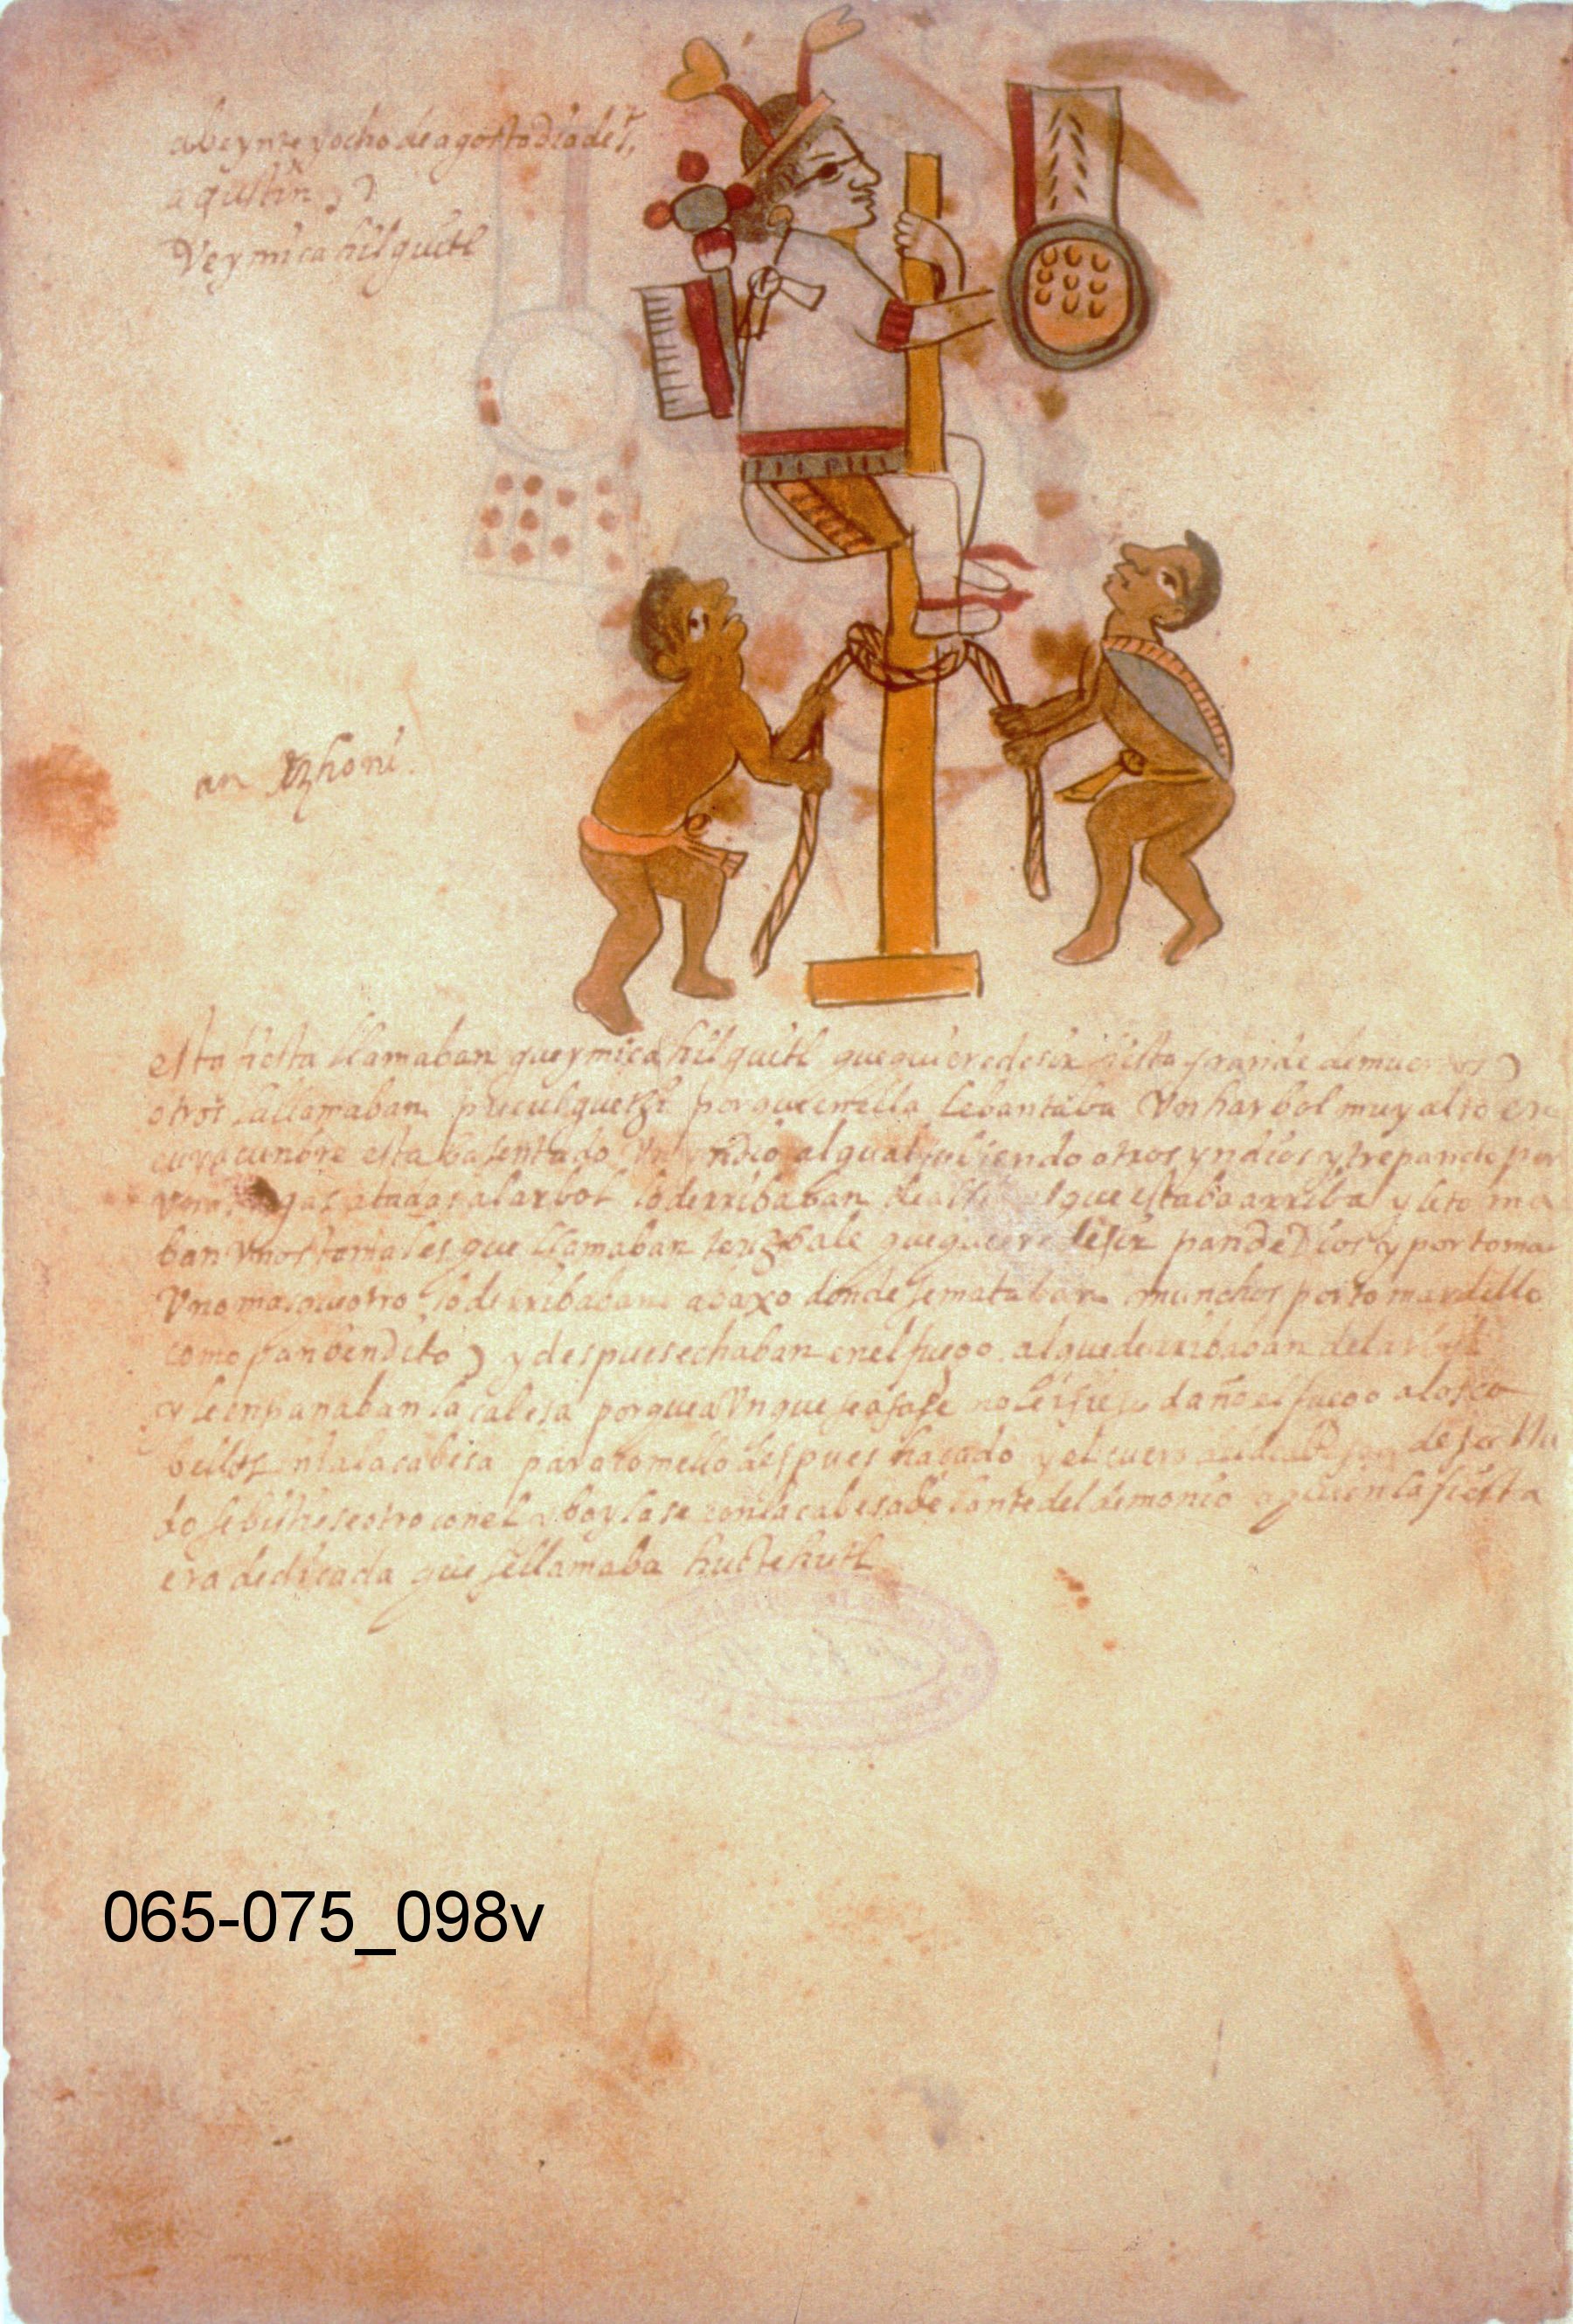 abeynte yocho de agosto dia de s.
agustin
Veymicahilguitl
an
esta fiesta llamaban gueymicahilguitl que quiere desir fiesta grande de muertos
otros la llamaban porque en ella lebantaba Vn harbol muy alto en
cuya cunbre estaba sentado Vn yndio al qual subiendo otros yndios y trepando por
Vnas atadas al arbol lo derribaban que estaba arriba y le toma
ban Vnos tamales que llamaban que quiere desir pan de Dios y por tomar
Vno mas que otro lo derribaban abaxo donde se mataban munchos por tomar dello
como pan bendito y despues echaban en el fuego al que derribaban del arbol
y le enpanaban la cabesa porque aVnque se asase no le isiese daño el fuego a los ca
bellos ni a la cabesa para comello despues hasado y el cuero
do se bistiese otro con el y baylase con la cabesa delante del demonio a quien la fiesta
era dedicada que se llamaba
065-075_098v